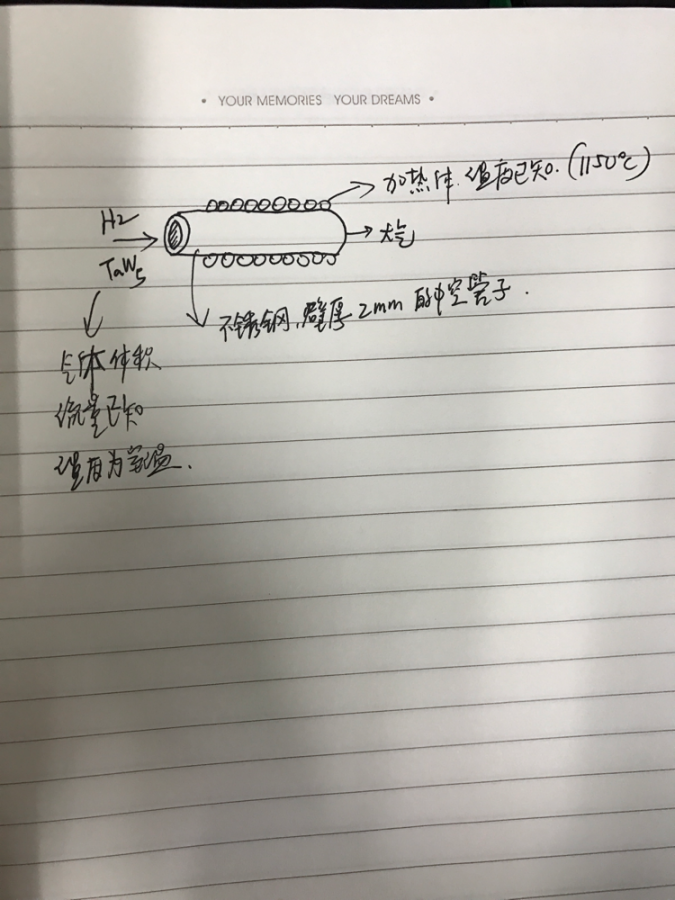 • YOUR MEMORIES YOUR DREAMS •
加热体.温度已知.(1150℃)
H2
大气
TaW5
不锈钢,壁厚2mm的中空管子.
气体体积
流量已知
温度为室温.